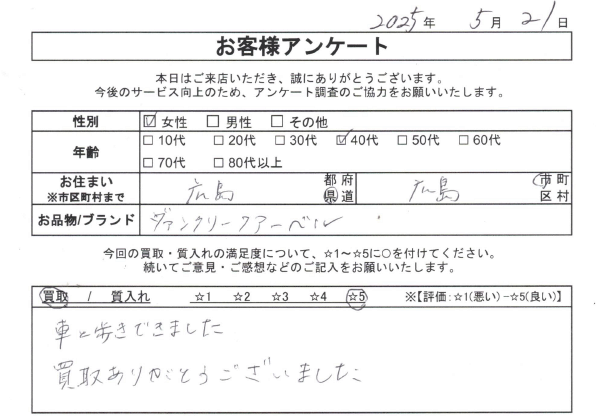 2025年 5月 21日
お客様アンケート
本日はご来店いただき、誠にありがとうございます。
今後のサービス向上のため、アンケート調査のご協力をお願いいたします。
性別 ☑ 女性 □ 男性 □ その他
年齢 □ 10代 □ 20代 □ 30代 ☑ 40代 □ 50代 □ 60代
□ 70代 □ 80代以上
お住まい ※市区町村まで 広島 都府県道 広島 市町区村
お品物/ブランド ヴァンクリークアーペル
今回の買取・質入れの満足度について、☆1～☆5に○を付けてください。
続いてご意見・ご感想などのご記入をお願いいたします。
買取 / 質入れ ☆1 ☆2 ☆3 ☆4 ☆5 ※【評価:☆1(悪い)-☆5(良い)】
車と歩きできました
買取ありがとうございました